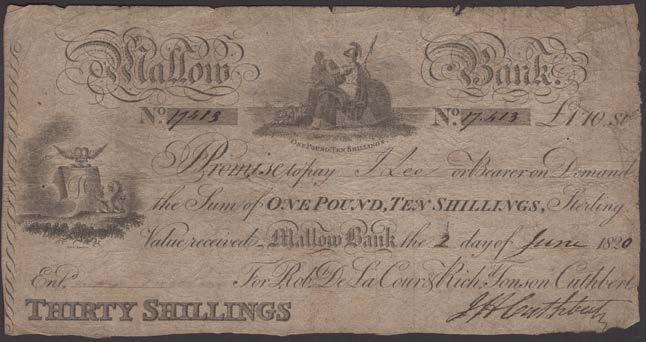 Mallow Bank.
No. 17413 No. 17.413 £1.10.St
ONE POUND, TEN SHILLINGS.
I Promise to pay J Lee or Bearer on Demand
the Sum of ONE POUND, TEN SHILLINGS, Sterling
Value received Mallow Bank the 2 day of June 1820
Entd. For Robt. De La Cour & Richd. Tonson Cuthbert
THIRTY SHILLINGS